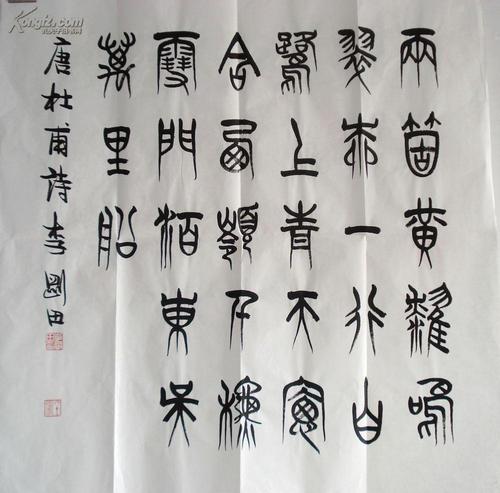 兩箇黃鸝鳴
翠柳一行白
鷺上青天窗
含西嶺千秋
雪門泊東吳
萬里船
唐杜甫詩李剛田
Kongfz.com